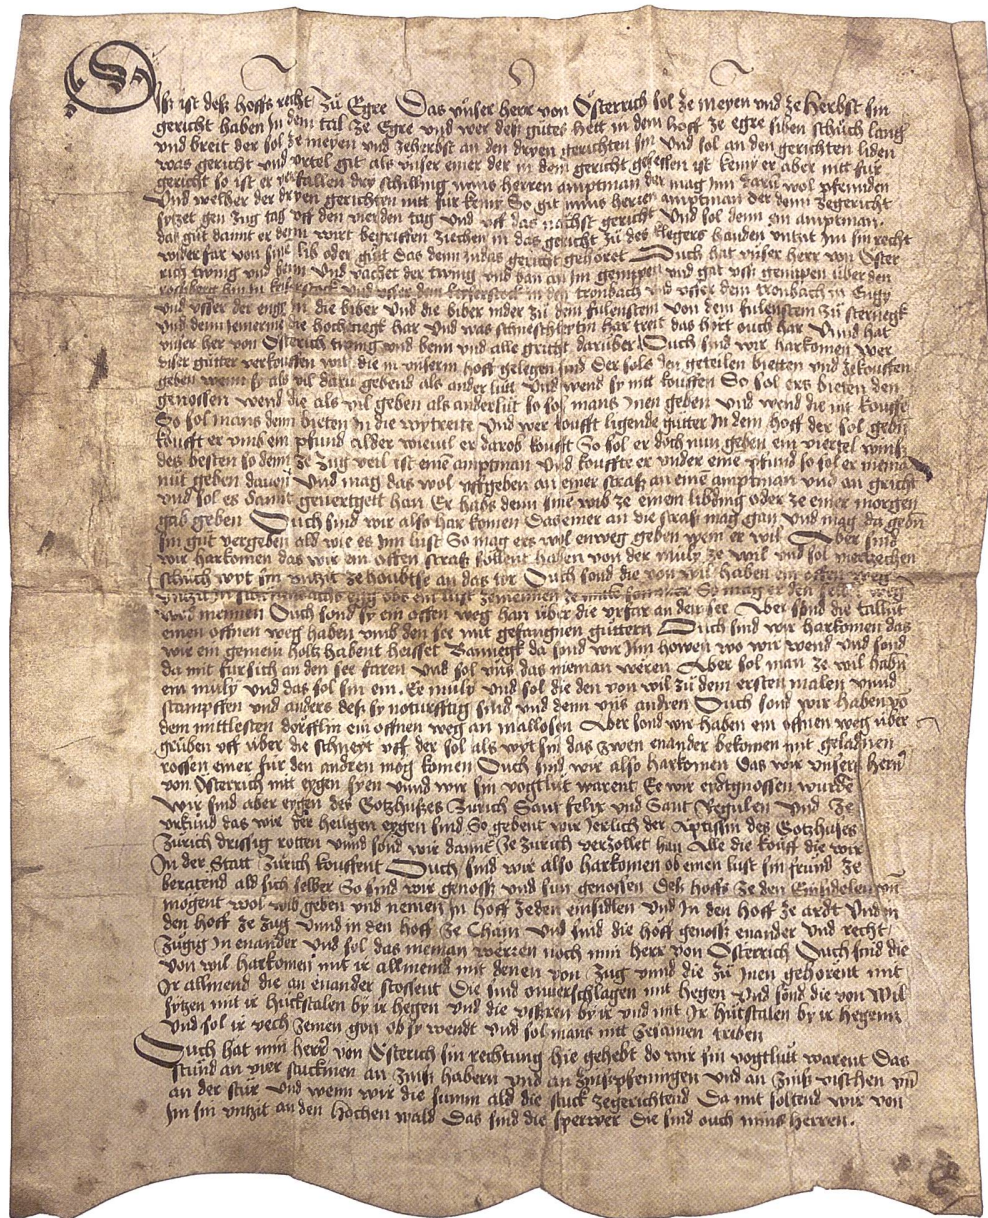 Diß ist deß hoffs recht zů Egre Das vnser herr von Österrich sol ze meyen vnd ze herbst sin
gericht haben In dem tal ze Egre vnd wer deß gůtes hett in dem hoff ze egre siben schůch lang
vnd breit der sol ze meyen vnd ze herbst an den dryen gerichten sin vnd sol an den gerichten liden
was gericht vnd vrtel git als vnser einer der in dem gericht gesessen ist kemy er aber nitt für
gericht so ist er verfallen dry schilling mins herren amptman der mag Inn darů wol pfennden
vnd welher der dryen gerichten nitt für kemy So git mins herren amptman der denn ze gericht
sytzet gen zug tag vff den vierden tag vnd vff das nåchst gericht vnd sol denn ein amptman
das gůt damit er denn wirt begriffen ziechen in das gericht zů des klegers handen vntzit Im sin recht
widerfar von sine lib oder gůt das denn in das gericht gehöret Ouch hat vnser herr von Öster
rich twing vnd benn vnd vachet der twing vnd ban an Im gemppen vnd gat vss gemppen über den
rosberg hin in kåferstock vnd vsser dem in den tronbach vnd vsser dem tronbach in Engy
vnd vsser der engy in die biber vnd die biber nider zů dem fulenstein von dem fulenstein zů sternegk
vnd denn iemerme die hochenegk har vnd was schneschleitin har treit das hört ouch har vnd hat
vnser her von Österich twing vnd benn vnd alle gricht darüber Ouch sind wir harkomen wer
diser gůtter verkouffen wil die in vnserm hoff gelegen sind Der sols den geteilen bietten vnd ze kouffen
geben wenn sy als vil darů gebend als ander lüt vnd wend sy nitt kouffen So sol ers bieten den
genossen wend die als vil geben als anderlüt so sol mans Inen geben vnd wend die nit kouffe
So sol mans denn bieten in die wytreite vnd wer koufft ligende gůtter In dem hoff der sol gebn
koufft er vmb ein pfund alder wieuil er darob koufft So sol er doch nun geben ein viertel wins
des besten so denn ze zug veil ist eine amptman vnd kouffte er vnder eine pfund so sol er niema
nüt geben dauon vnd mag das wol vffgeben an einer straß an eine amptman vnd an gricht
vnd sol es damit geuertgett han Er habs denn sine wib ze einem libding oder ze einer morgen
gab geben Ouch sind wir also har komen das einer an die straß mag gan vnd mag da gebn
sin gůt vergeben ald wie es Inn lust So mag ers wol enweg geben wem er wil Aber sind
wir harkomen das wir ein offen straß söllent haben von der muly ze wil vnd sol viertzechen
schůch wyt sin vntzit ze houbtse an das tor Ouch sond die von wil haben ein offen weg
vntzit in So mag er den weg
mennen Ouch sond sy ein offen weg han über die vrfar an den see Aber sond die tallüt
einen offnen weg haben vmb den see mit gefangnen gůttern Ouch sind wir harkomen das
wir ein gemein holtz habent heisset Bannegk da sond wir Inn howen wo wir wend vnd sond
da mit fürsich an den see faren vnd sol vns das nieman weren Aber sol man ze wil habn
ein muly vnd das sol sin ein Ee muly vnd sol die den von wil zů dem ersten malen vnnd
stampffen vnd anders deß sy noturfftig sind vnd denn vns andren Ouch sond wir haben vo
dem mittlesten dörfflin ein offnen weg an mallosen Aber sond wir haben ein offnen weg über
grůben vff über die schneyt vff der sol als wyt sin das zwen enander bekomen mit geladnen
rossen einer für den andren mög komen Ouch sind wir also harkomen das wir vnsers hern
von Österrich nitt eygen syen vnnd wir sin vogtlüt warent Ee wir eidtgnossen wurde
Wir sind aber eygen des Gotzhußes Zürich Sant felix vnd Sant Regulen vnd ze
vrkünd das wir der heiligen eygen sind So gebent wir Jerlich der Åptissin des Gotzhuses
Zürich drissig rotten vnnd sönd wir damit ze zürich verzollet han Alle die köuff die wir
In der Statt zürich kouffent Ouch sind wir also harkomen ob einen lust sin fründ ze
beratend ald sich selber So sind wir genoß vnd sun genossen deß hoffs ze den Einsidelen vn
mögent wol wib geben vnd nemen in hoff zeden einsidlen vnd In den hoff ze ardt vnd in
den hoff ze zug vnnd in den hoff ze Cham vnd sind die höff genoß enander vnd recht
zůgig In enander vnd sol das nieman werren noch min herr von Österrich Ouch sind die
von wil harkomen mit ir allmeind mit denen von zug vnnd die zů Inen gehörent mit
Ir allmend die an enander stossent Die sind onuerschlagen mit hegen vnd sönd die von Wil
sytzen mit ir hückstalen by ir hegen vnd die vssren by ir vnd mit Ir hückstalen by ir hegenn
vnd sol ir vech zemen gon ob sy wendt vnd sol mans nitt zesamen triben
Ouch hat min herr von Österich sin rechtung hie gehebt do wir sin vogtlütt warent Das
stůnd an vier stucknen an zinß habern vnd an zinßpfenningen vnd an zinß vischen vn
an der stür vnd wenn wir die summ ald die stuck ze gerichtend Da mit soltend wir von
Im sin vntzit an den hochen wald Das sind die sperwer Die sind ouch mins herren.